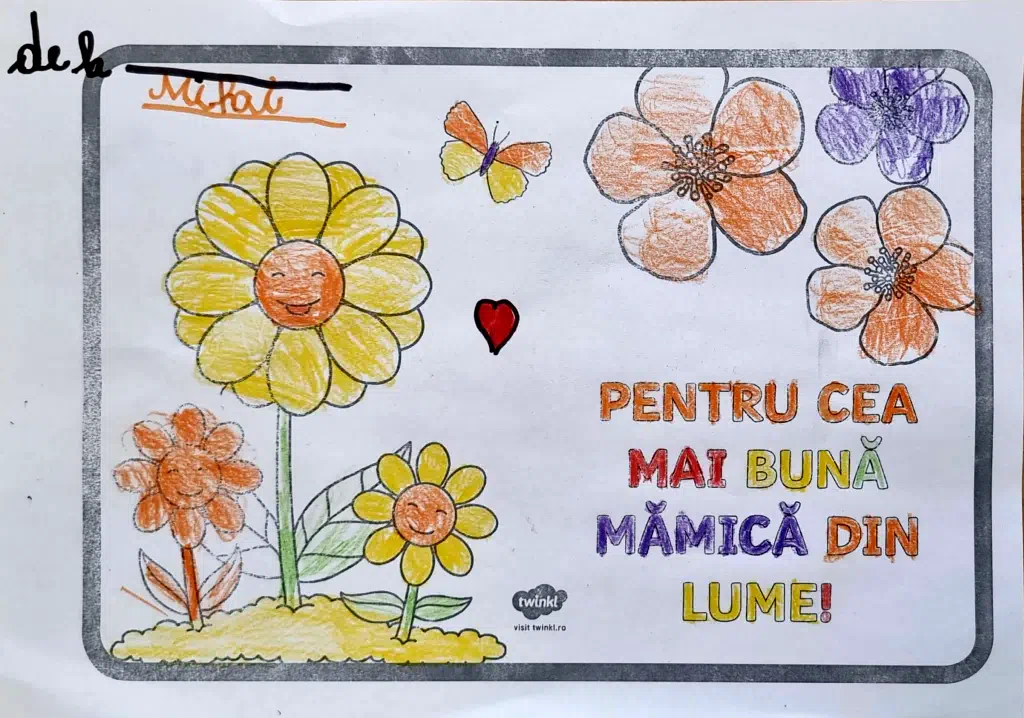 de la
Mihai
PENTRU CEA
MAI BUNĂ
MĂMICĂ DIN
LUME!
twinkl
visit twinkl.ro